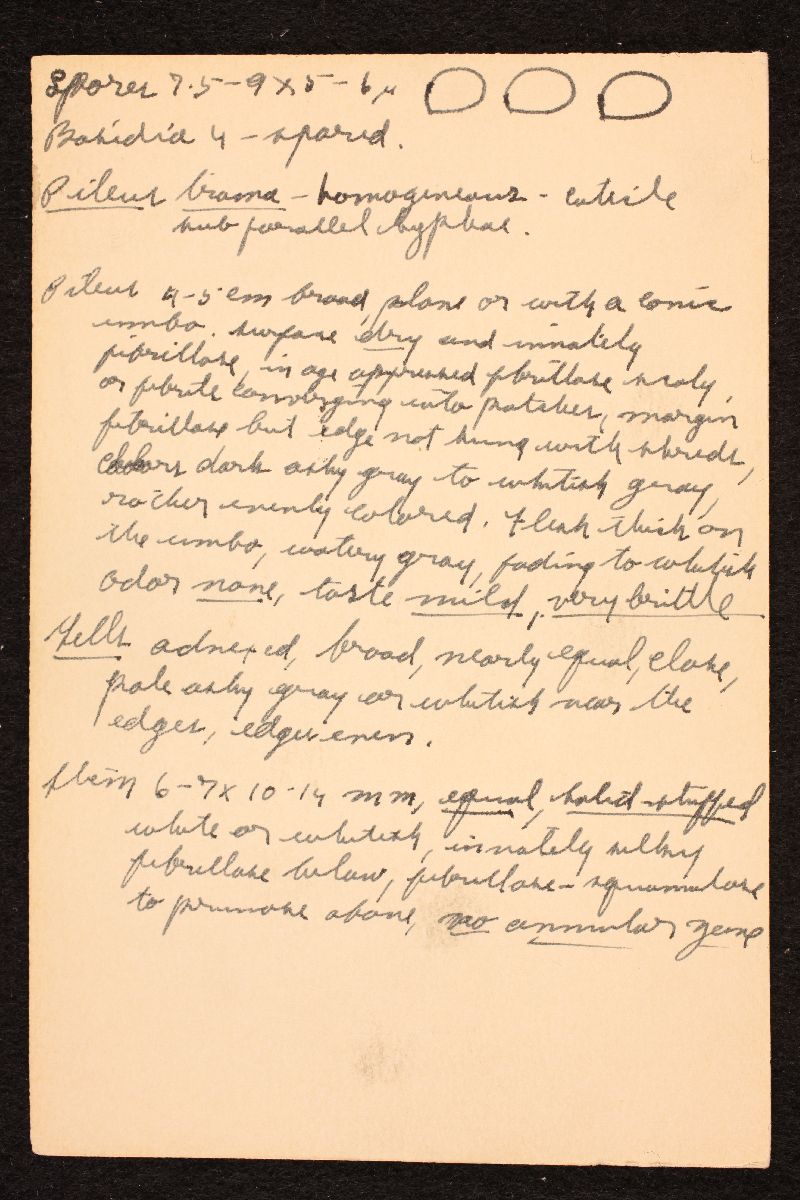 Spores 7.5-9 x 5-6 µ
Basidia 4-spored.
Pileus trama - homogeneous - cuticle
sub parallel hyphae.
Pileus 4-5 cm broad, plane or with a conic
umbo. surface dry and innately
fibrillose, in age appressed fibrillose scaly,
or fibrils converging into patches, margin
fibrillose but edge not hung with shreds,
colors dark ashy gray to whitish gray,
rather evenly colored. Flesh thick on
the umbo, watery gray, fading to whitish
odor none, taste mild, very brittle
Gills adnexed, broad, nearly equal, close,
pale ashy gray or whitish near the
edges, edges even.
Stem 6-7 x 10-14 mm, equal, solid-stuffed
white or whitish, innately silky
fibrillose below, fibrillose-squamulose
to pruinose above, no annular zone